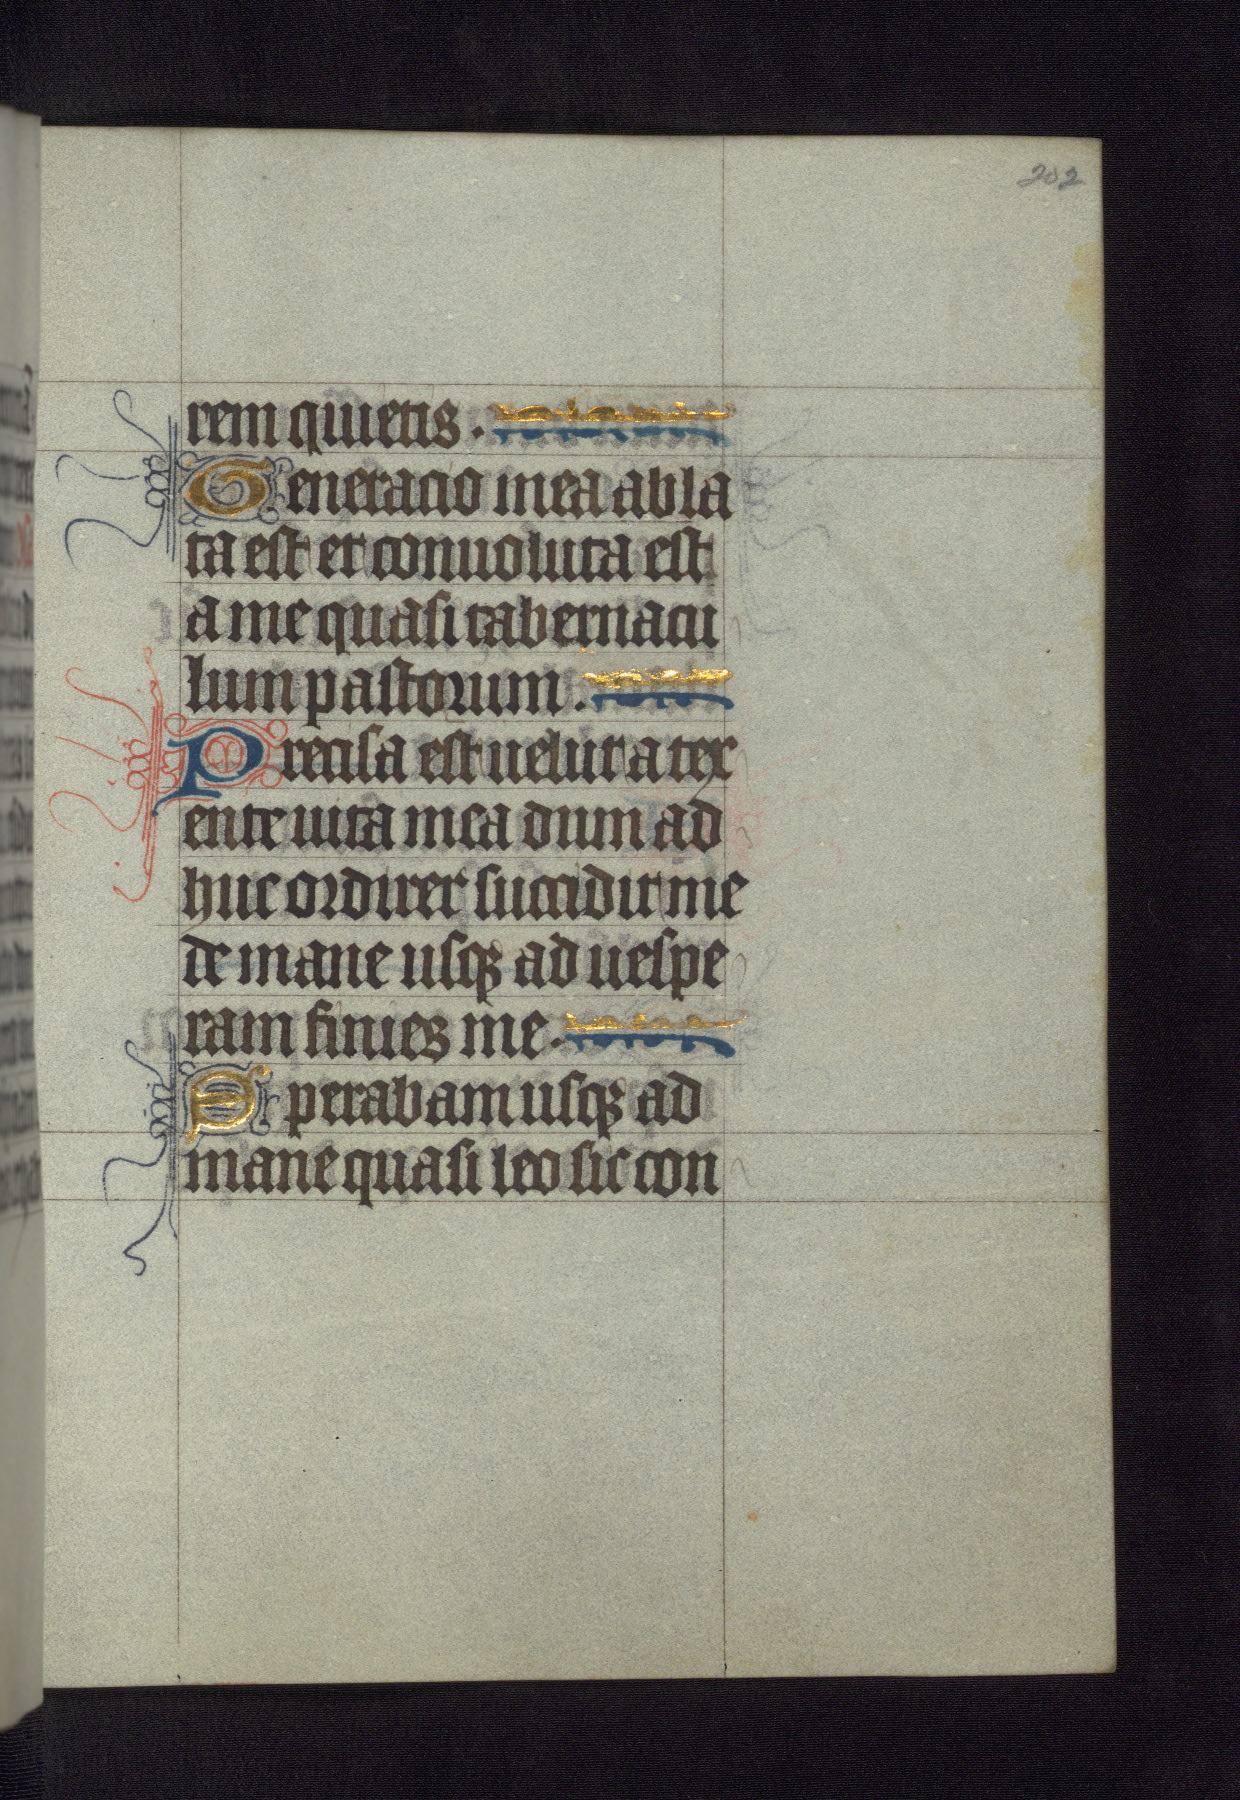 202
rem quietis.
Generacio mea abla
ta est et conuoluta est
a me quasi tabernacu
lum pastorum.
Precisa est uelut a tex
ente uita mea dum ad
huc ordirer succidit me
de mane usqꝫ ad uespe
ram finies me.
Sperabam usqꝫ ad
mane quasi leo sic con